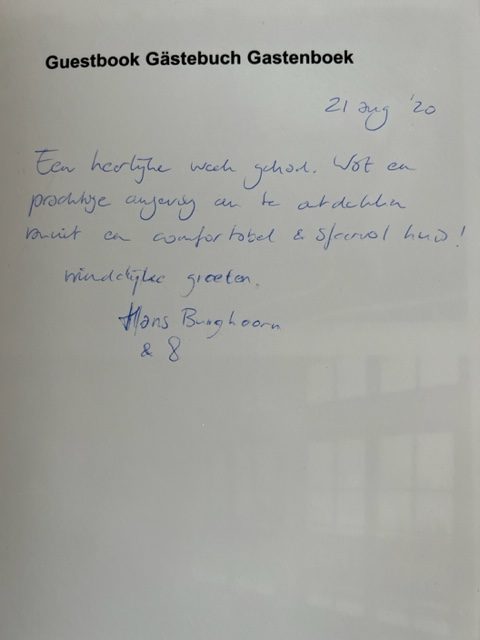 Guestbook Gästebuch Gastenboek
21 aug '20
Een heerlijke week gehad. Wat een
prachtige omgeving om te ontdekken
vanuit een comfortabel & sfeervol huis!
vriendelijke groeten,
Hans Burghoorn
& 8